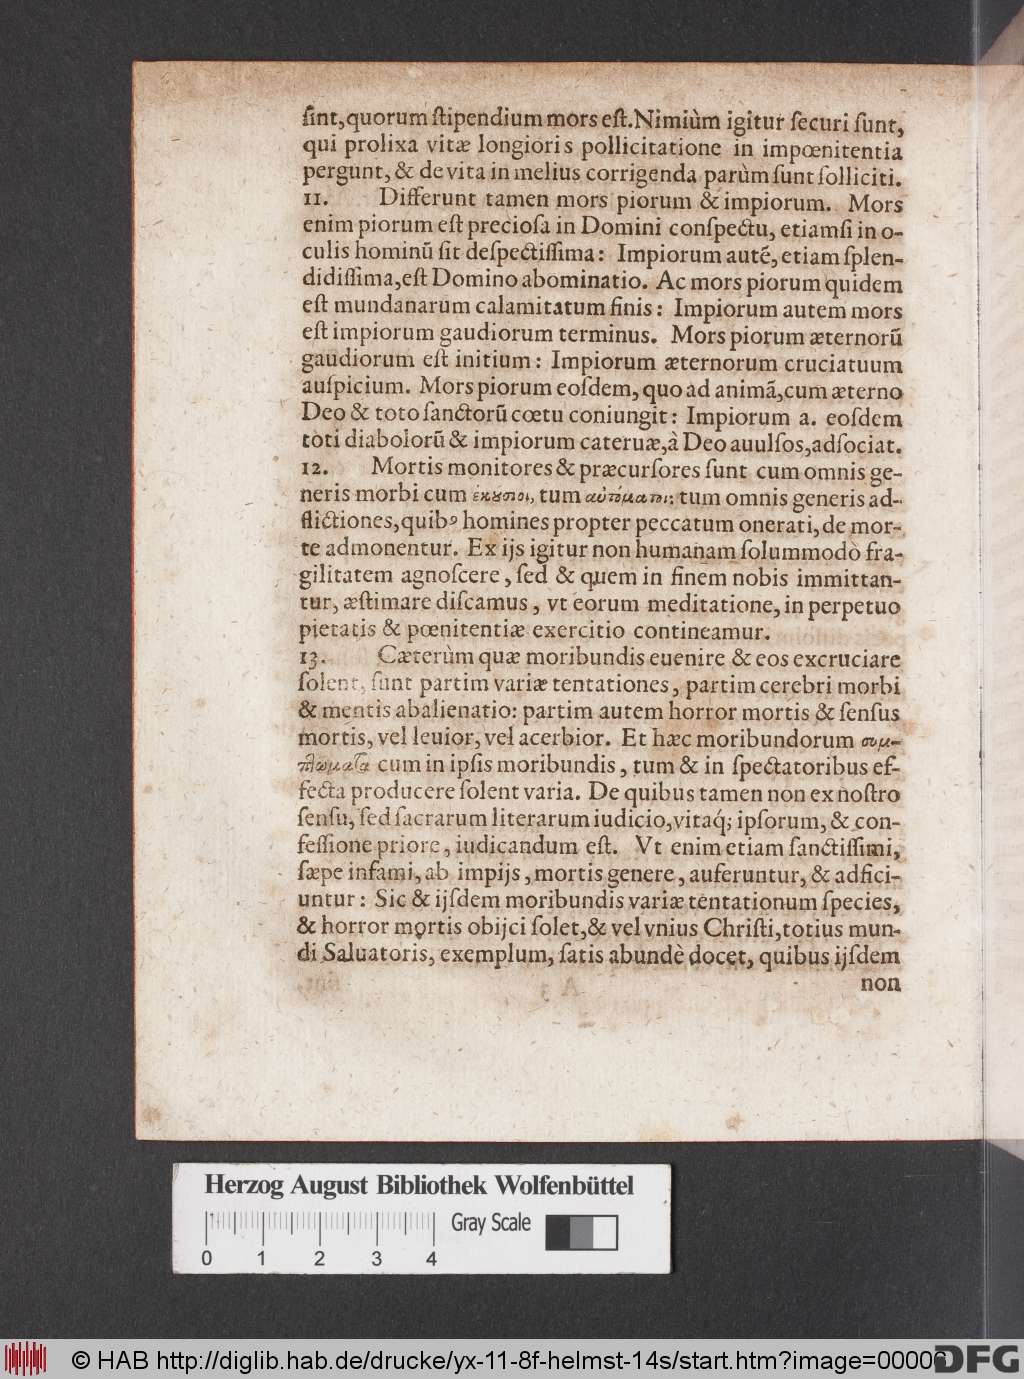 ſint, quorum ſtipendium mors eſt. Nimiùm igitur ſecuri ſunt,
qui prolixa vitæ longioris pollicitatione in impœnitentia
pergunt, & de vita in melius corrigenda parùm ſunt ſolliciti.
11. Differunt tamen mors piorum & impiorum. Mors
enim piorum eſt precioſa in Domini conſpectu, etiamſi in o-
culis hominũ ſit deſpectiſſima: Impiorum autẽ, etiam ſplen-
didiſſima, eſt Domino abominatio. Ac mors piorum quidem
eſt mundanarum calamitatum finis: Impiorum autem mors
eſt impiorum gaudiorum terminus. Mors piorum æternorũ
gaudiorum eſt initium: Impiorum æternorum cruciatuum
auſpicium. Mors piorum eoſdem, quo ad animã, cum æterno
Deo & toto ſanctorũ cœtu coniungit: Impiorum a. eoſdem
toti diabolorũ & impiorum cateruæ, à Deo auulſos, adſociat.
12. Mortis monitores & præcurſores ſunt cum omnis ge-
neris morbi cum ἑκούσιοι, tum αὐτόματοι: tum omnis generis ad-
flictiones, quibꝰ homines propter peccatum onerati, de mor-
te admonentur. Ex ijs igitur non humanam ſolummodò fra-
gilitatem agnoſcere, ſed & quem in finem nobis immittan-
tur, æſtimare diſcamus, vt eorum meditatione, in perpetuo
pietatis & pœnitentiæ exercitio contineamur.
13. Cæterùm quæ moribundis euenire & eos excruciare
ſolent, ſunt partim variæ tentationes, partim cerebri morbi
& mentis abalienatio: partim autem horror mortis & ſenſus
mortis, vel leuior, vel acerbior. Et hæc moribundorum συμ-
πτώματα cum in ipſis moribundis, tum & in ſpectatoribus ef-
fecta producere ſolent varia. De quibus tamen non ex noſtro
ſenſu, ſed ſacrarum literarum iudicio, vitaq́; ipſorum, & con-
feſſione priore, iudicandum eſt. Vt enim etiam ſanctiſſimi,
ſæpe infami, ab impijs, mortis genere, auferuntur, & adfici-
untur: Sic & ijſdem moribundis variæ tentationum ſpecies,
& horror mortis obijci ſolet, & vel vnius Chriſti, totius mun-
di Saluatoris, exemplum, ſatis abundè docet, quibus ijſdem
non
Herzog August Bibliothek Wolfenbüttel
Gray Scale
0 1 2 3 4
© HAB http://diglib.hab.de/drucke/yx-11-8f-helmst-14s/start.htm?image=00006
DFG